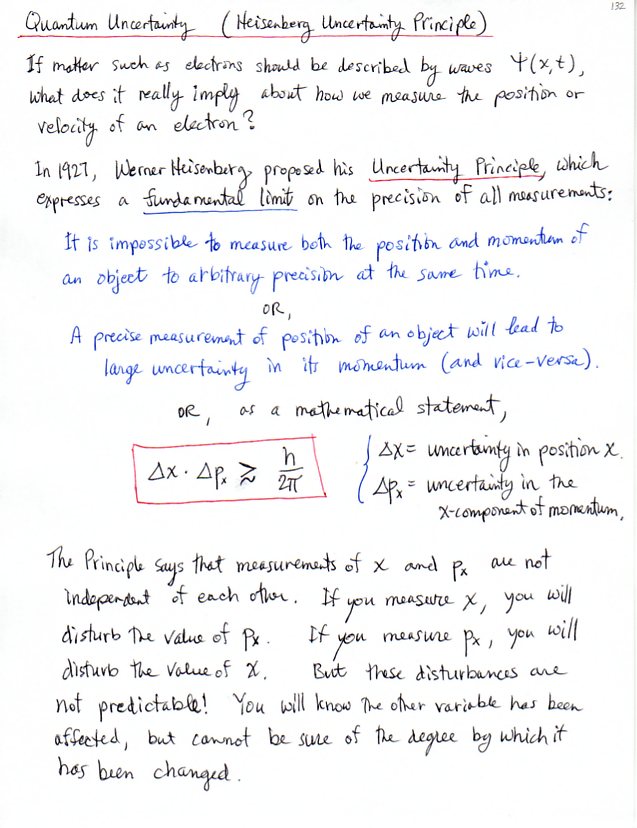 132
Quantum Uncertainty (Heisenberg Uncertainty Principle)
If matter such as electrons should be described by waves Ψ(x,t),
what does it really imply about how we measure the position or
velocity of an electron?
In 1927, Werner Heisenberg, proposed his Uncertainty Principle, which
expresses a fundamental limit on the precision of all measurements:
It is impossible to measure both the position and momentum of
an object to arbitrary precision at the same time.
OR,
A precise measurement of position of an object will lead to
large uncertainty in its momentum (and vice-versa).
OR, as a mathematical statement,
Δx · Δpₓ ≳ h/2π
Δx = uncertainty in position x.
Δpₓ = uncertainty in the
x-component of momentum.
The Principle says that measurements of x and pₓ are not
independent of each other. If you measure x, you will
disturb the value of pₓ. If you measure pₓ, you will
disturb the value of x. But these disturbances are
not predictable! You will know the other variable has been
affected, but cannot be sure of the degree by which it
has been changed.